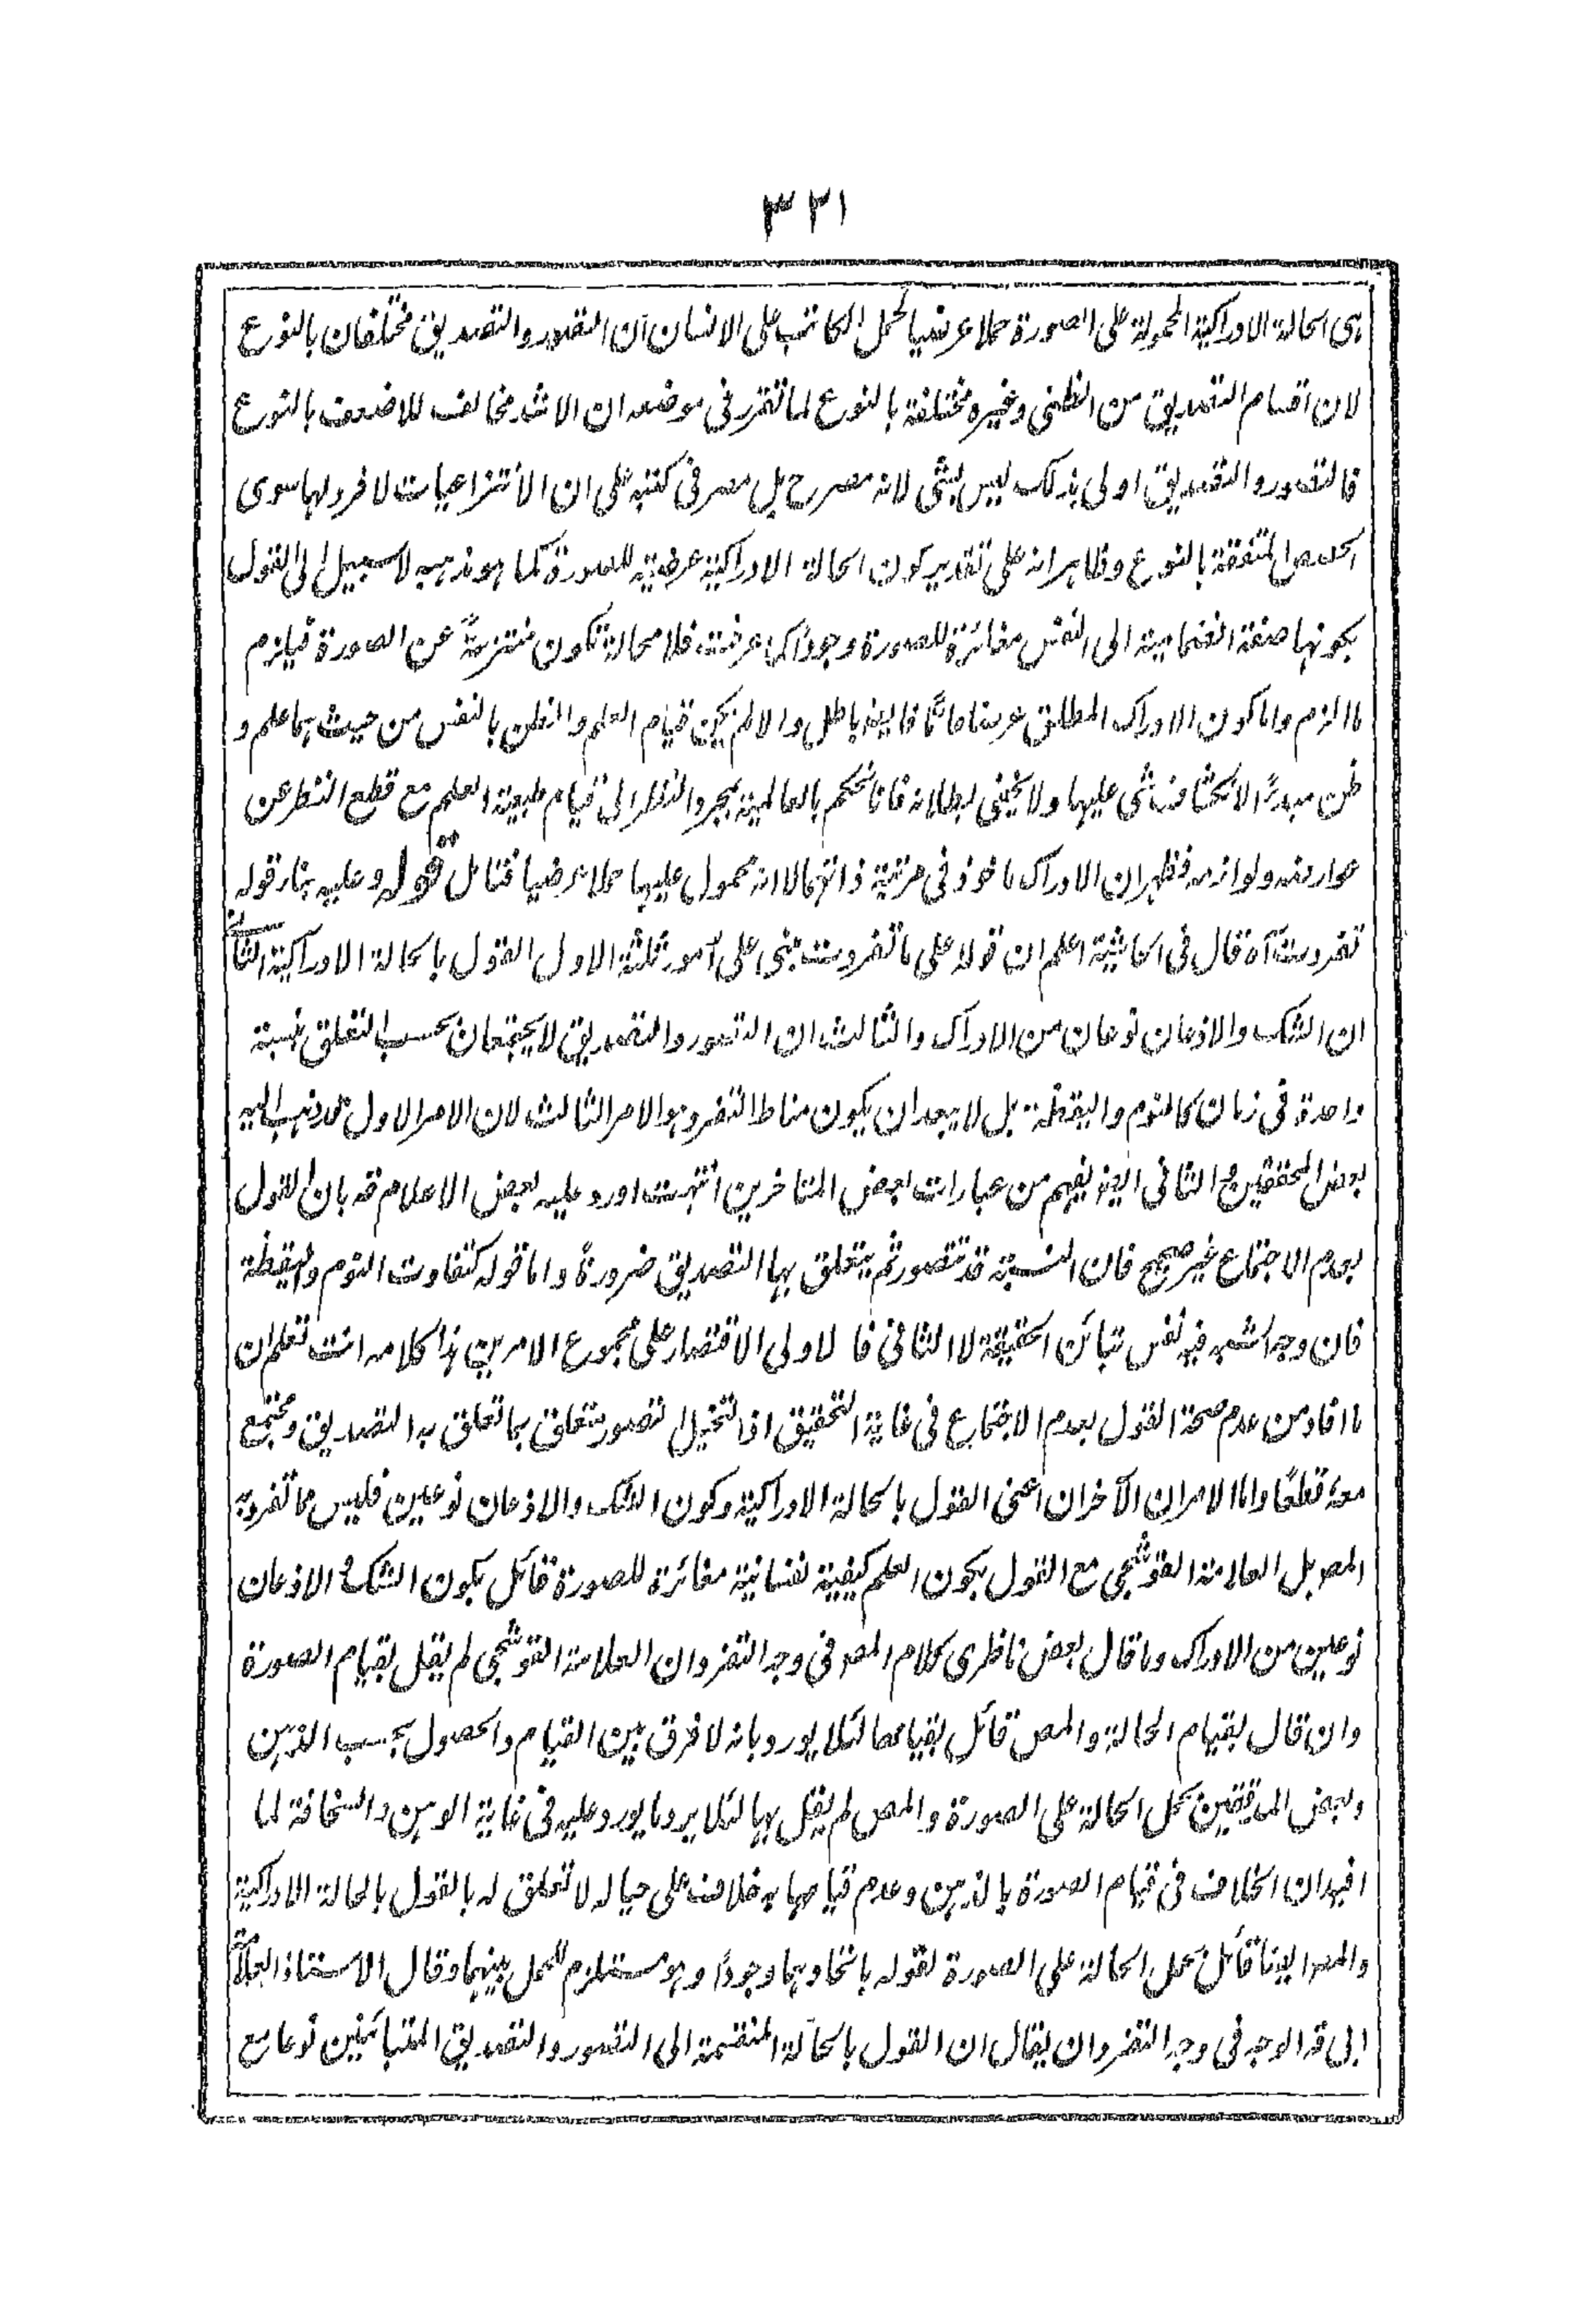 ٣٢١
هى الحالة الادراكية المحمولة على الصورة حملا عرضيا كحمل الكاتب على الانسان ان التصور والتصديق مختلفان بالنوع
لان اقسام التصديق من الظنى وغيره مختلفة بالنوع لما تقرر فى موضعه ان الاشد مخالف للاضعف بالنوع
فالتصور والتصديق اولى بذلك ليس بشئ لانه مصرح بل مصر فى كتبه على ان الانتزاعيات لا فرد لها سوى
الحصص المتفقة بالنوع وظاهر انه على تقدير كون الحالة الادراكية عرضية للصورة كما هو مذهبه لا سبيل الى القول
بكونها صفة انضمامية الى النفس مغائرة للصورة وجودا كما عرفت فلا محالة تكون منتزعة عن الصورة فيلزم
ما الزم واما كون الادراك المطلق عرضا عاما فايضا باطل والا لم يكن قيام العلم والظن بالنفس من حيث هما علم و
ظن مبدءً الانكشاف شئ عليها ولا يخفى بطلانه فانا نحكم بالعالمية بمجرد النظر الى قيام طبيعة العلم مع قطع النظر عن
عوارضه ولوازمه فظهر ان الادراك ماخوذ فى مرتبة ذاتهما لا انه محمول عليها حملا عرضيا فتامل قوله وعليه بناء قوله
تفردت آه قال فى الحاشية اعلم ان قوله على ما تفردت مبنى على امور ثلثة الاول القول بالحالة الادراكية الثانى
ان الشك والاذعان نوعان من الادراك والثالث ان التصور والتصديق لا يجتمعان بحسب التعلق بنسبة
واحدة فى زمان كالنوم واليقظة بل لا يبعد ان يكون مناط التفرد هو الامر الثالث لان الامر الاول قد ذهب اليه
بعض المحققين والثانى ايضا يفهم من عبارات بعض المتاخرين انتهت اورد عليه بعض الاعلام قه بان القول
بعدم الاجتماع غير صحيح فان النسبة قد تتصور ثم يتعلق بها التصديق ضرورةً واما قوله كتفاوت النوم واليقظة
فان وجه الشبه فيه نفس تبائن الحقيقة لا الثانى فالاولى الاقتصار على مجموع الامرين هذا كلامه انت تعلم ان
ما افاد من عدم صحة القول بعدم الاجتماع فى غاية التحقيق اذ التخيل تصور متعلق بما تعلق به التصديق ومجتمع
معه قطعًا واما الامران الآخران اعنى القول بالحالة الادراكية وكون الشك والاذعان نوعين فليس مما تفرد به
المص بل العلامة القوشجى مع القول بكون العلم كيفية نفسانية مغائرة للصورة قائل بكون الشك والاذعان
نوعين من الادراك وما قال بعض ناظرى كلام المص فى وجه التفرد ان العلامة القوشجى لم يقل بقيام الصورة
وان قال بقيام الحالة والمص قائل بقيامهما لئلا يورد بانه لا فرق بين القيام والحصول بحسب الذهن
وبعض المدققين بحمل الحالة على الصورة والمص لم يقل بها لئلا يرد ما يورد عليه فى غاية الوهن والسخافة لما
افيد ان الخلاف فى قيام الصورة بالذهن وعدم قيامها به خلاف على حياله لا تعلق له بالقول بالحالة الادراكية
والمص ايضا قائل بحمل الحالة على الصورة لقوله باتحادهما وجودًا وهو مستلزم للحمل بينهما وقال الاستاذ العلامة
ابى قه الوجه فى وجه التفرد ان يقال ان القول بالحالة المنقسمة الى التصور والتصديق المتبائنين نوعا مع